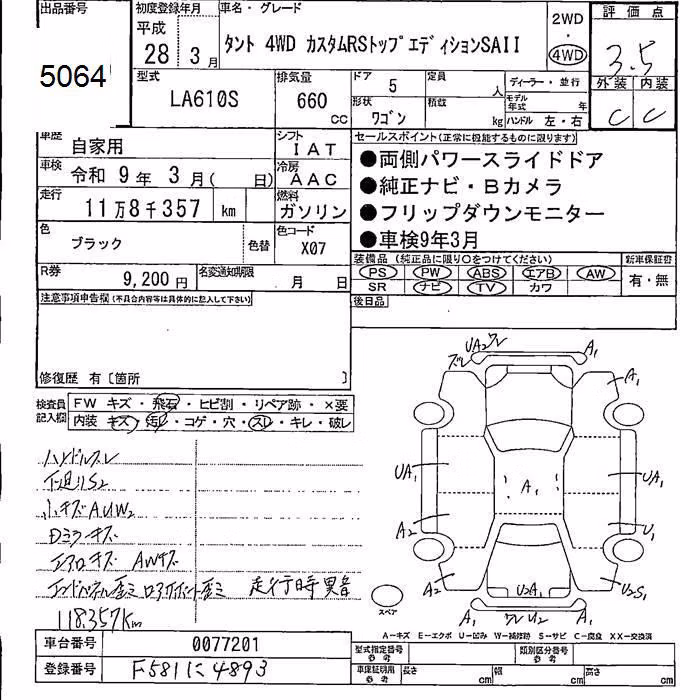 出品番号 初度登録年月 車名・グレード 2WD 評価点
平成 28年 3月 タント 4WD カスタムRSトップエディションSAII 4WD 3.5
5064
型式 排気量 ドア 5 定員 人 ディーラー・並行 外装 内装
LA610S 660 cc 形状 ワゴン 積載 kg モデル年式 年 ハンドル 左・右 C C
車歴 自家用 シフト IAT セールスポイント(正常に機能するものに限ります)
車検 令和 9年 3月(日) 冷房 AAC ●両側パワースライドドア
走行 11万8千357 km 燃料 ガソリン ●純正ナビ・Bカメラ
●フリップダウンモニター
色 ブラック 色替 色コード X07 ●車検9年3月
装備品(純正品に限り○をつけてください) 新車保証書
R券 9,200円 名変通知期限 月 日 PS PW ABS エアB AW 有・無
SR ナビ TV カワ
注意事項申告欄(不具合内容等は具体的に記入して下さい) 後日品
修復歴 有〔箇所 〕
検査員記入欄 FW キズ・飛石・ヒビ割・リペア跡・×要
内装 キズ・汚レ・コゲ・穴・スレ・キレ・破レ
ハンドルスレ
下廻りS2
小キズAUW2
Dミラーキズ
エアロキズ AWキズ
エンドパネル歪ミ ロアサポート歪ミ 走行時異音
118.357Km
UA2 ワレ A1
ズレ A1
UA1 A1 UA1
A2 U1
A2 U2A1 U2S1
A1 ワレ U2 A1
スペア
A－キズ E－エクボ U－凹み W－補修跡 S－サビ C－腐食 XX－交換済
車台番号 0077201 型式指定番号 参考 類別区分番号 参考
登録番号 F581に4893 車庫証明用 参考 長さ cm 幅 cm 高さ cm